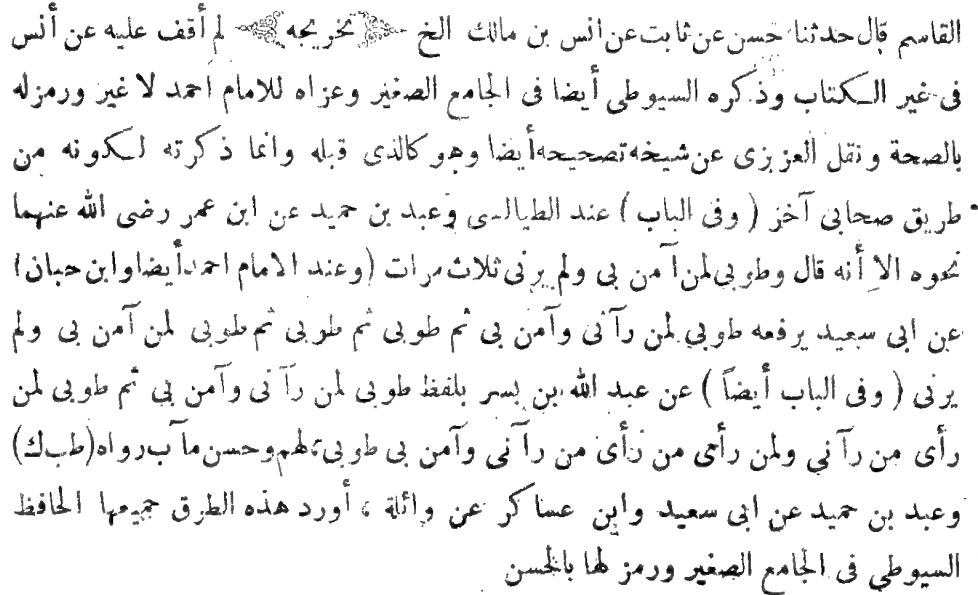 القاسم قال حدثنا حسن عن ثابت عن انس بن مالك الخ ﴿ تخريجه ﴾ لم أقف عليه عن أنس
فى غير الكتاب وذكره السيوطى أيضا فى الجامع الصغير وعزاه للامام احمد لا غير ورمز له
بالصحة ونقل العزيزى عن شيخه تصحيحه أيضا وهو كالذى قبله وانما ذكرته لكونه من
طريق صحابى آخر ( وفى الباب ) عند الطيالسى وعبد بن حميد عن ابن عمر رضى الله عنهما
نحوه الا أنه قال وطوبى لمن آمن بى ولم يرنى ثلاث مرات (وعند الامام احمد أيضا وابن حبان)
عن ابى سعيد يرفعه طوبي لمن رآنى وآمن بى ثم طوبى ثم طوبى ثم طوبى لمن آمن بى ولم
يرنى ( وفى الباب أيضاً ) عن عبد الله بن بسر بلفظ طوبى لمن رآنى وآمن بى ثم طوبى لمن
رأى من رآني ولمن رأى من رأى من رآنى وآمن بى طوبى لهم وحسن مآب رواه (طب ك)
وعبد بن حميد عن ابى سعيد وابن عساكر عن واثلة ، أورد هذه الطرق جميعها الحافظ
السيوطي فى الجامع الصغير ورمز لها بالحسن